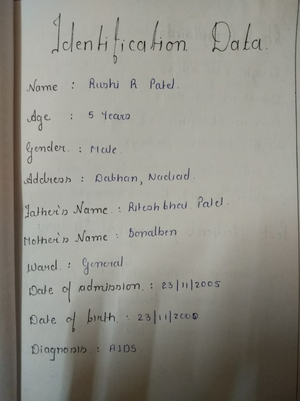 Identification Data.
Name : Rushi R Patel.
Age : 5 Years
Gender : Male.
Address : Dabhan, Nadiad.
Father's Name : Riteshbhai Patel.
Mother's Name : Sonalben
Ward : General.
Date of admission : 23/11/2005
Date of birth : 23/11/2000
Diagnosis : AIDS.